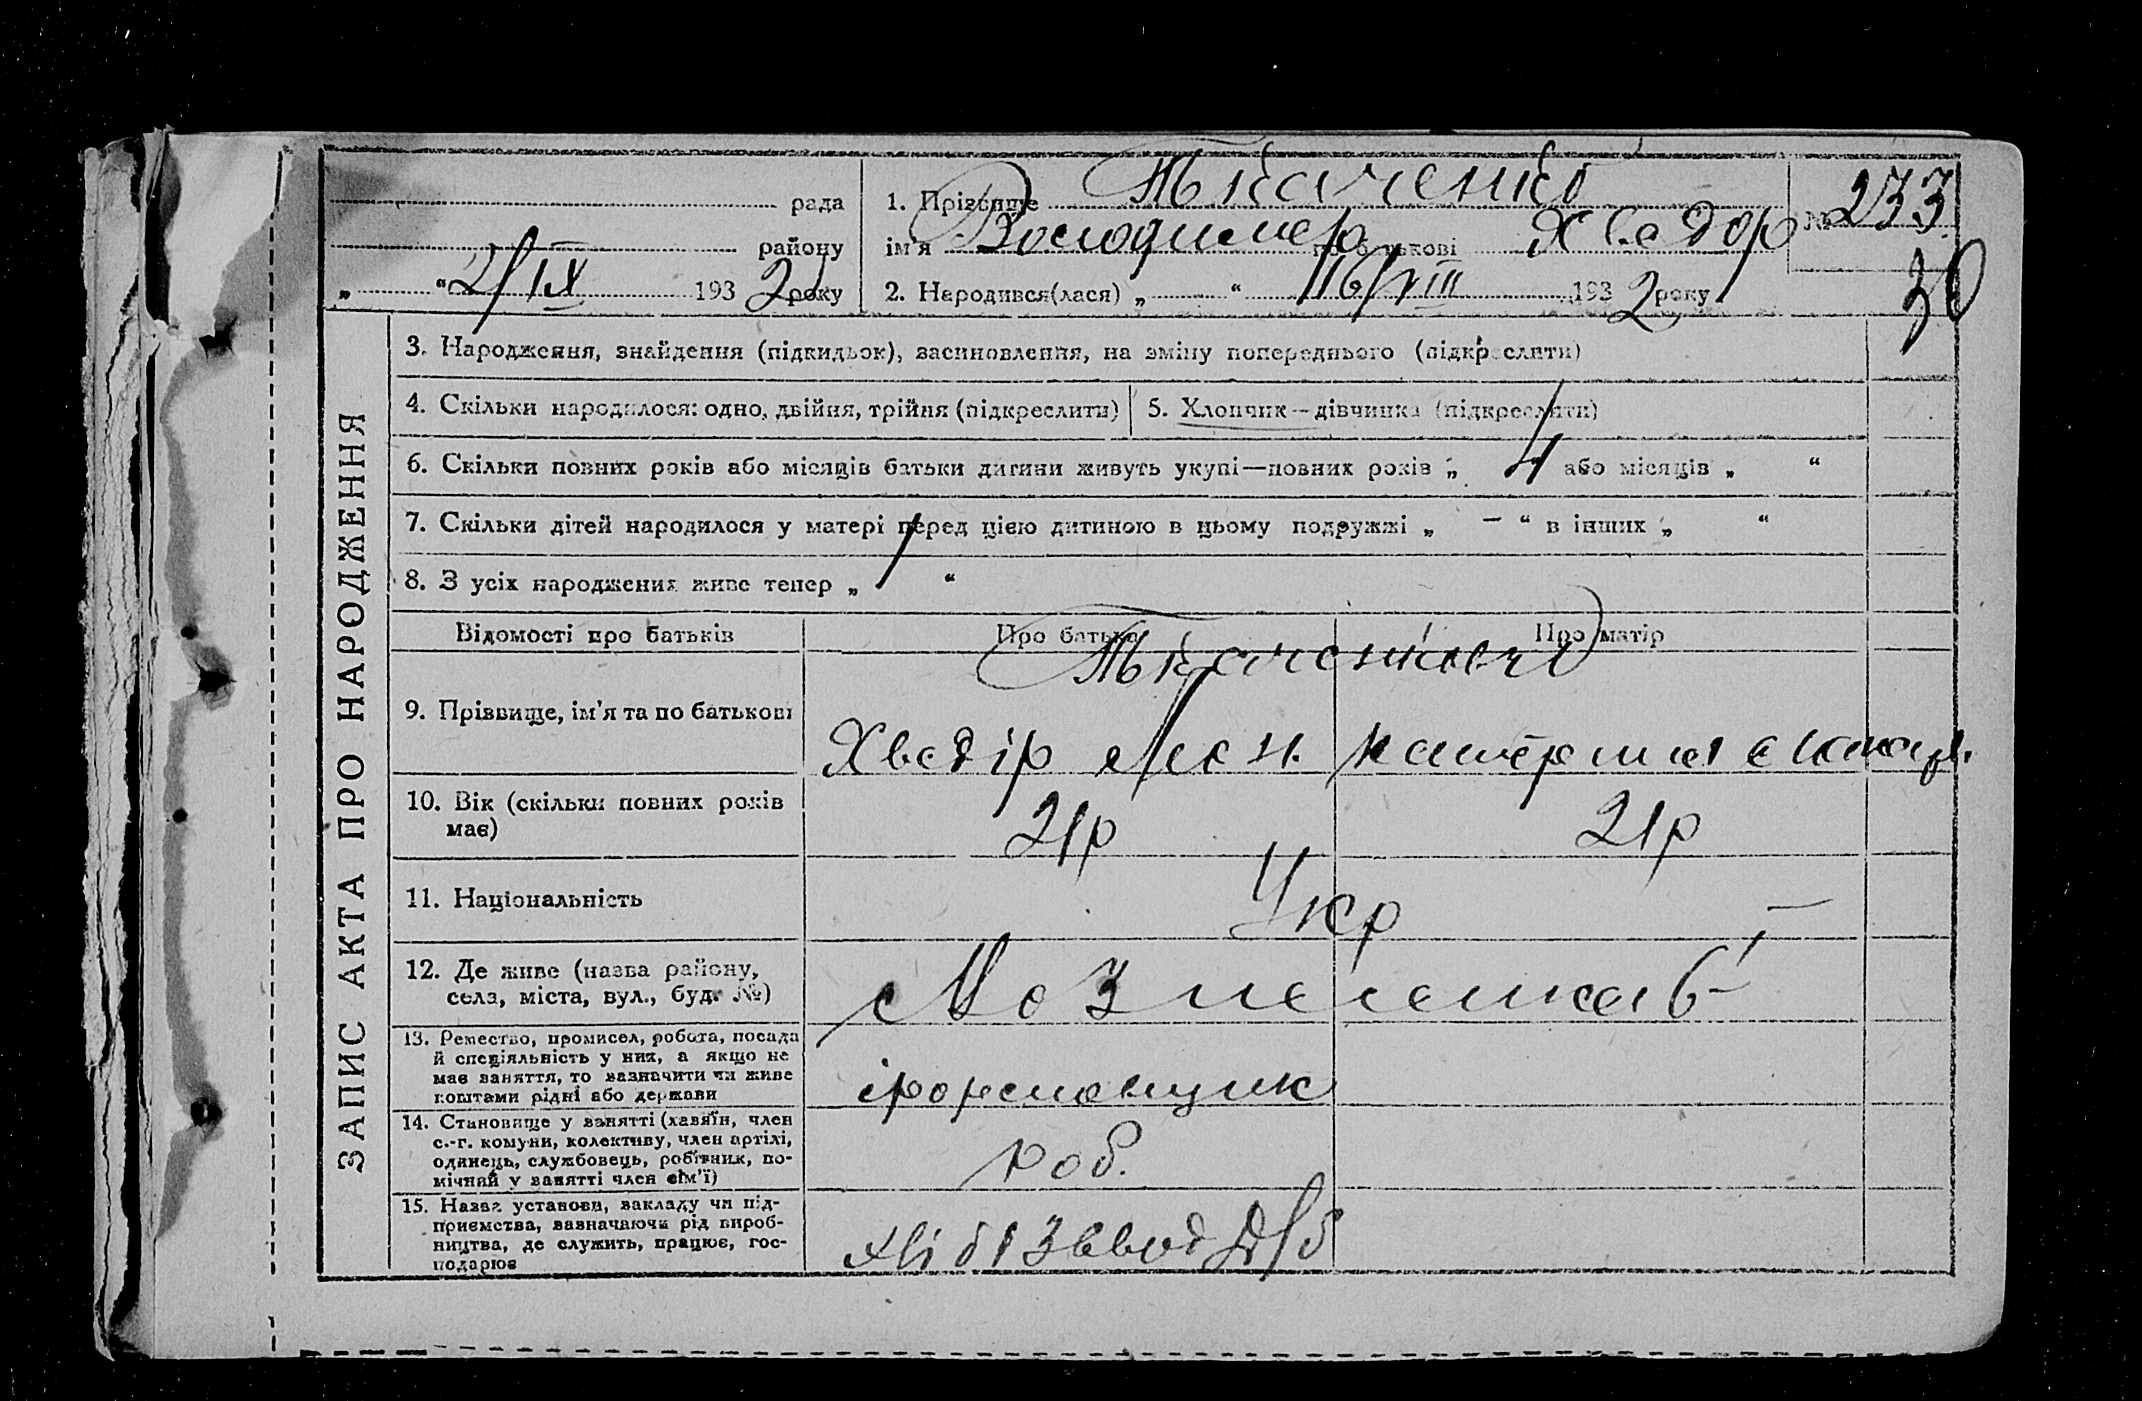 ЗАПИС АКТА ПРО НАРОДЖЕННЯ
рада
району
„ “ 2/IX 1932 року
1. Прізвище Ткаченко
ім'я Володимер по батькові Хведор
2. Народився(лася) „ “ 16/VIII 1932 року
№ 233
30
3. Народження, знайдення (підкидьок), засиновлення, на зміну попереднього (підкреслити)
4. Скільки народилося: одно, двійня, трійня (підкреслити)
5. Хлопчик—дівчинка (підкреслити)
6. Скільки повних років або місяців батьки дитини живуть укупі—повних років „ 4 “ або місяців „ “
7. Скільки дітей народилося у матері перед цією дитиною в цьому подружжі „ – “ в інших „ “
8. З усіх народжених живе тепер „ 1 “
Відомості про батьків
Про батька
Про матір
Ткаченкови
9. Прізвище, ім'я та по батькові
Хведір
10. Вік (скільки повних років має)
21р
21р
11. Національність
Укр —
12. Де живе (назва району, села, міста, вул., буд. №)
13. Ремество, промисел, робота, посада
й спеціяльність у них, а якщо не
має заняття, то зазначити чи живе
коштами рідні або держави
14. Становище у занятті (хазяїн, член
с.-г. комуни, колективу, член артілі,
одинець, службовець, робітник, по-
мічний у занятті член сім'ї)
роб.
15. Назва установи, закладу чи під-
приємства, зазначаючи рід вироб-
ництва, де служить, працює, гос-
подарює